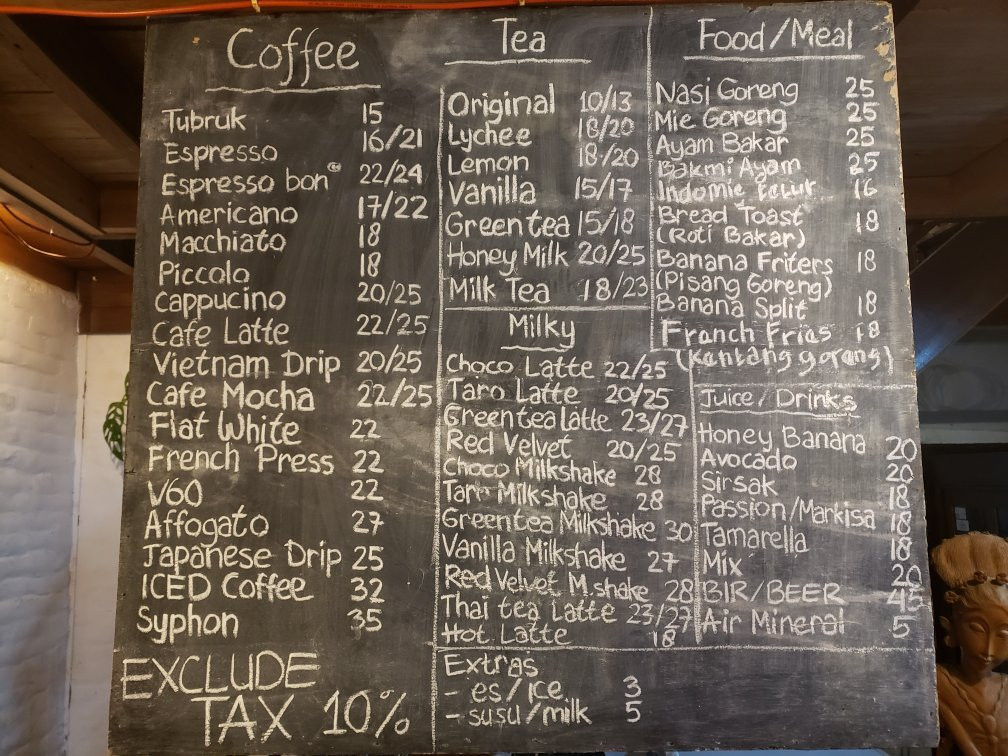 Coffee
Tubruk 15
Espresso 16/21
Espresso bon 22/24
Americano 17/22
Macchiato 18
Piccolo 18
Cappucino 20/25
Cafe Latte 22/25
Vietnam Drip 20/25
Cafe Mocha 22/25
Flat White 22
French Press 22
V60 22
Affogato 27
Japanese Drip 25
ICED Coffee 32
Syphon 35
EXCLUDE
TAX 10%
Tea
Original 10/13
Lychee 18/20
Lemon 18/20
Vanilla 15/17
Green tea 15/18
Honey Milk 20/25
Milk Tea 18/23
Milky
Choco Latte 22/25
Taro Latte 20/25
Greentea Latte 23/27
Red Velvet 20/25
Choco Milkshake 28
Taro Milkshake 28
Greentea Milkshake 30
Vanilla Milkshake 27
Red Velvet M.shake 28
Thai tea Latte 23/27
Hot Latte 18
Extras
- es/ice 3
- susu/milk 5
Food/Meal
Nasi Goreng 25
Mie Goreng 25
Ayam Bakar 25
Bakmi Ayam 25
Indomie Telur 16
Bread Toast 18
(Roti Bakar)
Banana Friters 18
(Pisang Goreng)
Banana Split 18
Franch Frias 18
(Kantang gorang)
Juice/Drinks
Honey Banana 20
Avocado 20
Sirsak 18
Passion/Markisa 18
Tamarella 18
Mix 20
BIR/BEER 45
Air Mineral 5